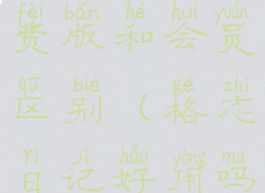 fèi bǎn hé huì yuán
费版和会员
qū bié gé zhì
区别（格志
rì jì hǎo yòng ma
日记好用吗